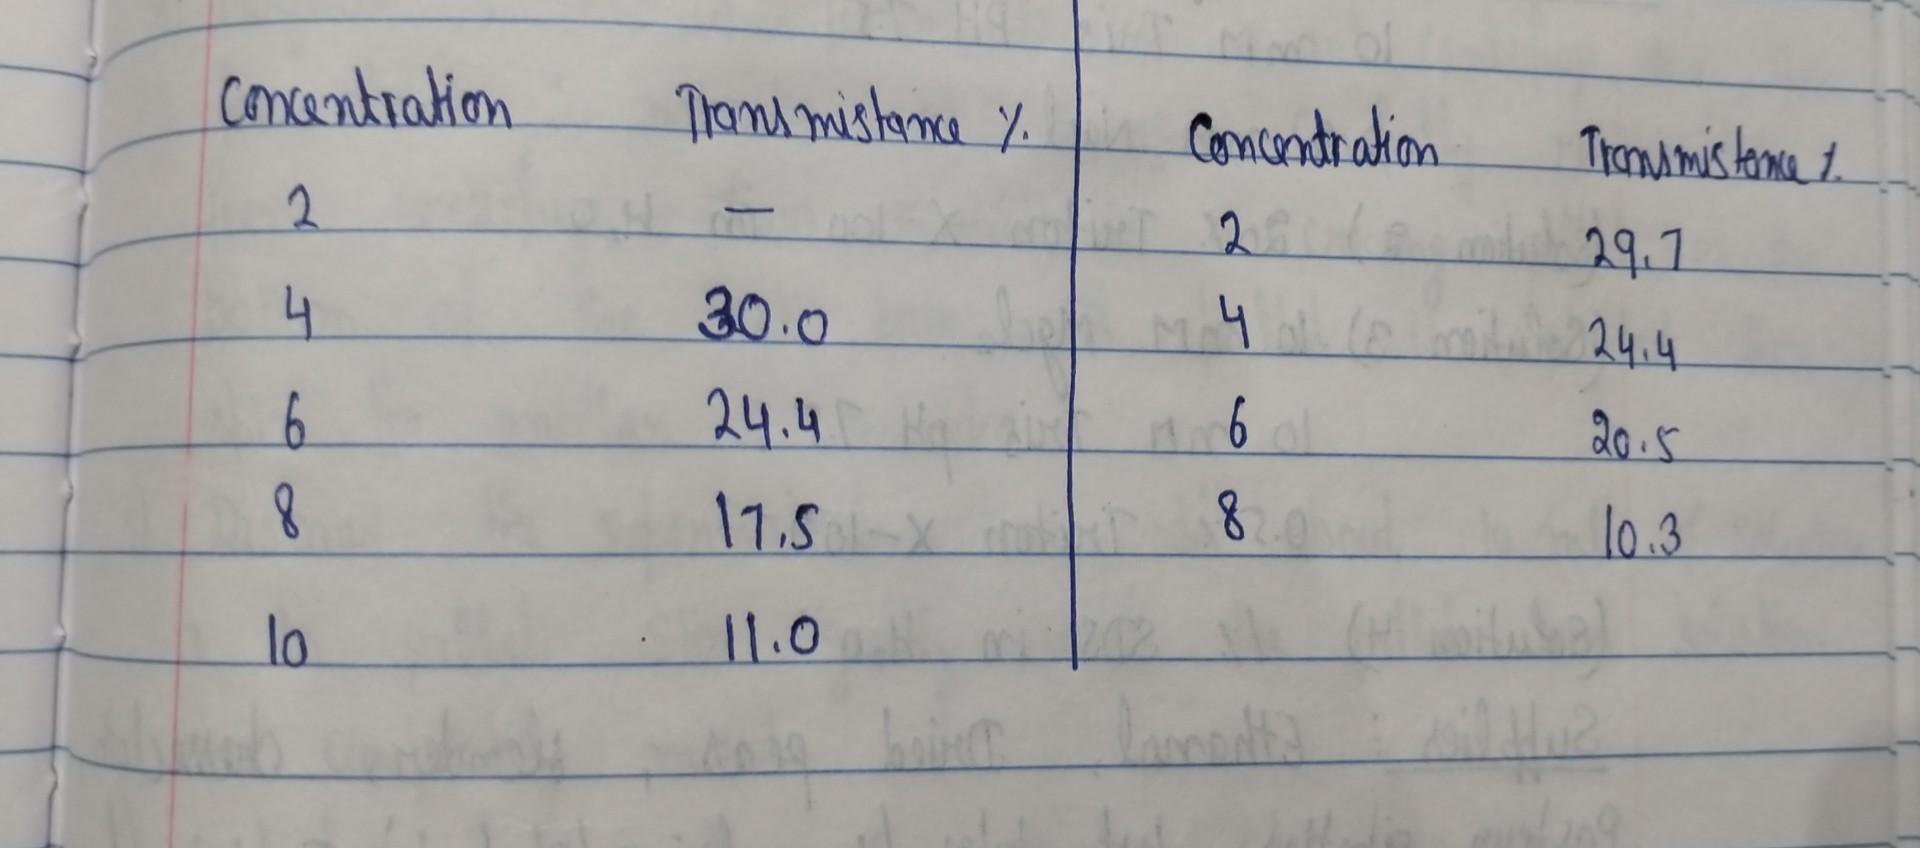 Concentration Transmistance %.
2 —
4 30.0
6 24.4
8 17.5
10 11.0
Concentration Transmistance %.
2 29.7
4 24.4
6 20.5
8 10.3